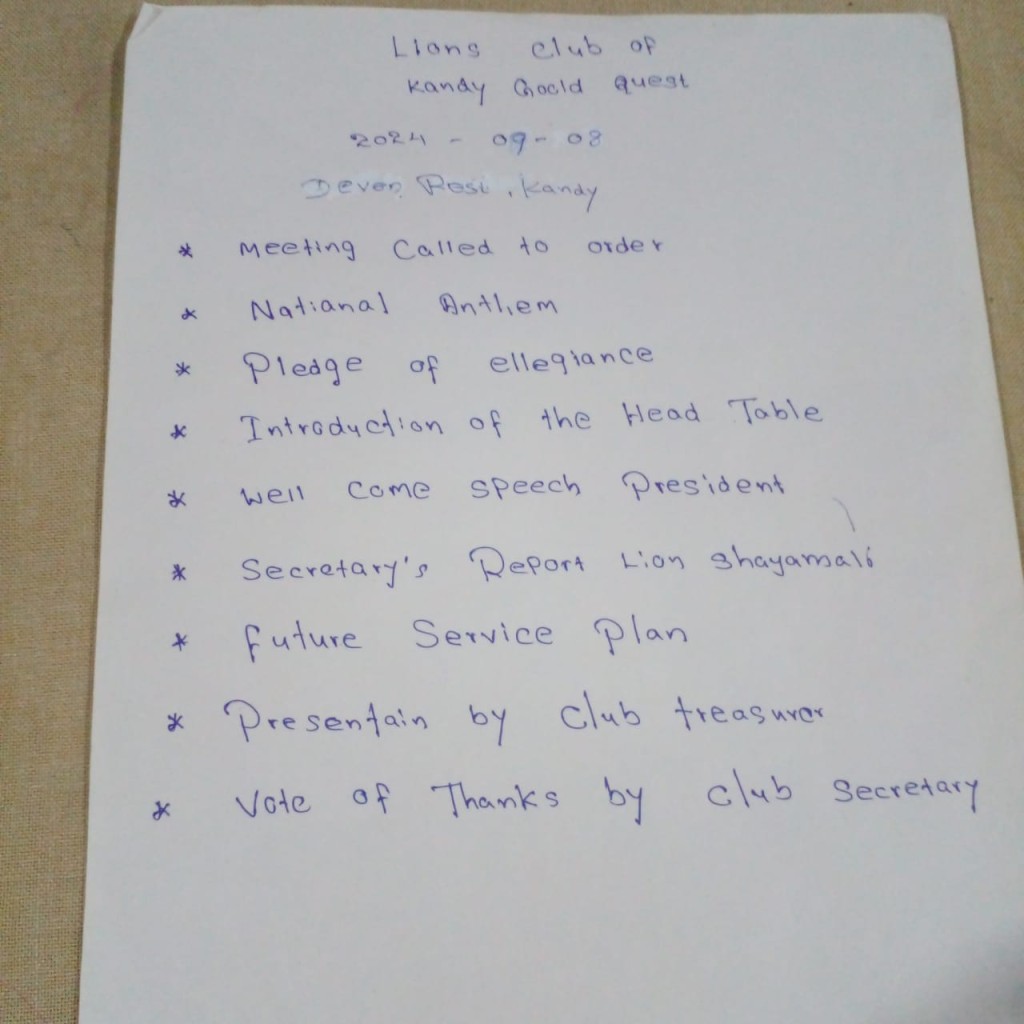 Lions club of
Kandy Goold quest
2024 - 09 - 08
Deven Rest, Kandy
* Meeting Called to order
* Natianal Anthem
* Pledge of ellegiance
* Introduction of the Head Table
* Well Come speech President
* Secretary's Report Lion Shayamali
* future Service Plan
* Presentain by Club treasurer
* Vote of Thanks by Club Secretary